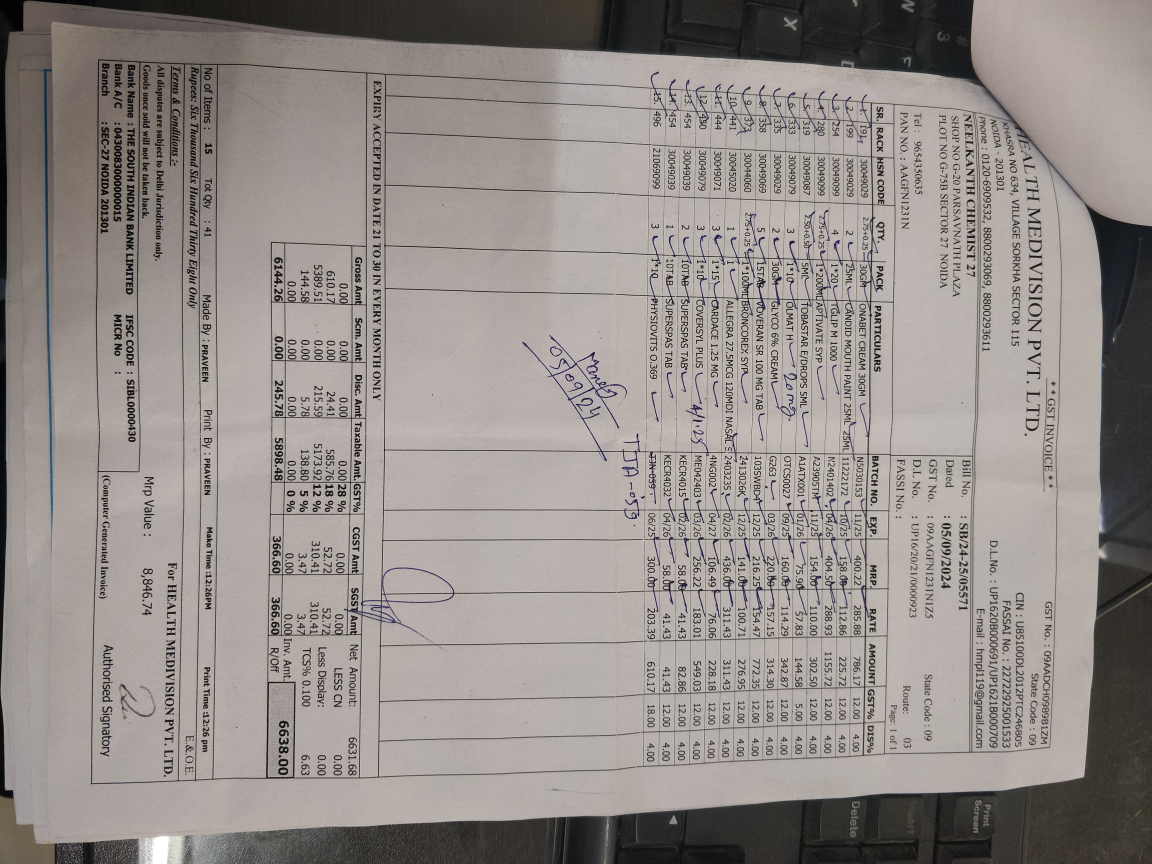 ** GST INVOICE **
GST No. : 09AADCH0989B1ZM
HEALTH MEDIVISION PVT. LTD.
State Code : 09
KHASRA NO 634, VILLAGE SORKHA SECTOR 115
CIN : U85100DL2012PTC246805
NOIDA - 201301
FASSAI No. : 22722925001533
Phone : 0120-6909532, 8800293069, 8800293611
D.L.No. : UP1620B000691/UP1621B000709
E-mail : hmpl119@gmail.com
NEELKANTH CHEMIST 27
SHOP NO G-20 PARSAVNATH PLAZA
PLOT NO G-75B SECTOR 27 NOIDA
Tel : 9654350635
PAN NO. : AAGFN1231N
Bill No. : SB/24-25/05571
Dated : 05/09/2024
GST No. : 09AAGFN1231N1Z5 State Code : 09
D.L No. : UP16/20/21/0000923 Route: 03
FASSI No. : Page: 1 of 1
SR. RACK HSN CODE QTY. PACK PARTICULARS BATCH NO. EXP. MRP. RATE AMOUNT GST% DIS%
1. 191 30049029 2.75+0.25 30GM ONABET CREAM 30GM N5030153 11/25 400.22 285.88 786.17 12.00 4.00
2. 199 30049029 2 25ML CANDID MOUTH PAINT 25ML 25ML 11222172 10/25 158.00 112.86 225.72 12.00 4.00
3. 254 30049099 4 1*20 TGLIP M 1000 N2401402 04/26 404.50 288.93 1155.72 12.00 4.00
4. 280 30049099 2.75+0.25 1*200ML APTIVATE SYP 11/25 154.00 110.00 302.50 12.00 4.00
5. 319 30049087 2.50+0.50 5ML TOBASTAR E/DROPS 5ML A1ATX001 01/26 75.90 57.83 144.58 5.00 4.00
6. 333 30049079 3 1*10 OLMAT H 20mg OTCS0027 09/25 160.00 114.29 342.87 12.00 4.00
7. 335 30049029 2 30GM GLYCO 6% CREAM G263 03/26 220.00 157.15 314.30 12.00 4.00
8. 358 30049069 5 15TAB VOVERAN SR 100 MG TAB 12/25 216.25 154.47 772.35 12.00 4.00
9. 373 30044060 2.75+0.25 1*100ML BRONCOREX SYP 2413026K 12/25 141.00 100.71 276.95 12.00 4.00
10. 441 30045020 1 1 ALLEGRA 27.5MCG 120MDI NASAL S 2403235 02/26 436.00 311.43 311.43 12.00 4.00
11. 444 30049071 3 1*15 CARDACE 1.25 MG 4NG002 04/27 106.49 76.06 228.18 12.00 4.00
12. 450 30049079 3 1*10 COVERSYL PLUS 4/1.25 MED42403 03/26 256.22 183.01 549.03 12.00 4.00
13. 454 30049039 2 10TAB SUPERSPAS TAB KECR4015 02/26 58.00 41.43 82.86 12.00 4.00
14. 454 30049039 1 10TAB SUPERSPAS TAB KECR4032 04/26 58.00 41.43 41.43 12.00 4.00
15. 496 21069099 3 1*10 PHYSIOVITS O.369 TJN-059 06/25 300.00 203.39 610.17 18.00 4.00
TJA-059
05/09/24
EXPIRY ACCEPTED IN DATE 21 TO 30 IN EVERY MONTH ONLY
Gross Amt Scm. Amt Disc. Amt Taxable Amt. GST% CGST Amt SGST Amt
0.00 0.00 0.00 0.00 28 % 0.00 0.00
610.17 0.00 24.41 585.76 18 % 52.72 52.72
5389.51 0.00 215.59 5173.92 12 % 310.41 310.41
144.58 0.00 5.78 138.80 5 % 3.47 3.47
0.00 0.00 0.00 0.00 0 % 0.00 0.00
6144.26 0.00 245.78 5898.48 366.60 366.60
Net Amount: 6631.68
LESS CN 0.00
Less Display: 0.00
TCS% 0.100 6.63
Inv. Amt. R/Off 6638.00
No of Items : 15 Tot Qty. : 41 Made By : PRAVEEN Print By : PRAVEEN Make Time :12:26PM Print Time :12:26 pm
Rupees: Six Thousand Six Hundred Thirty Eight Only E.& O.E.
Terms & Conditions :-
All disputes are subject to Delhi Jurisdiction only.
Goods once sold will not be taken back.
Mrp Value : 8,846.74
For HEALTH MEDIVISION PVT. LTD.
Bank Name : THE SOUTH INDIAN BANK LIMITED IFSC CODE : SIBL0000430
Bank A/C : 0430083000000015 MICR No :
Branch : SEC-27 NOIDA 201301
(Computer Generated Invoice)
Authorised Signatory
Print Screen
Insert
Delete
N
X
# 3